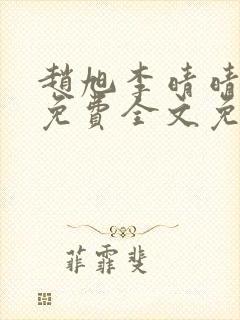 趙旭李晴晴
免費全文免
菲霏斐